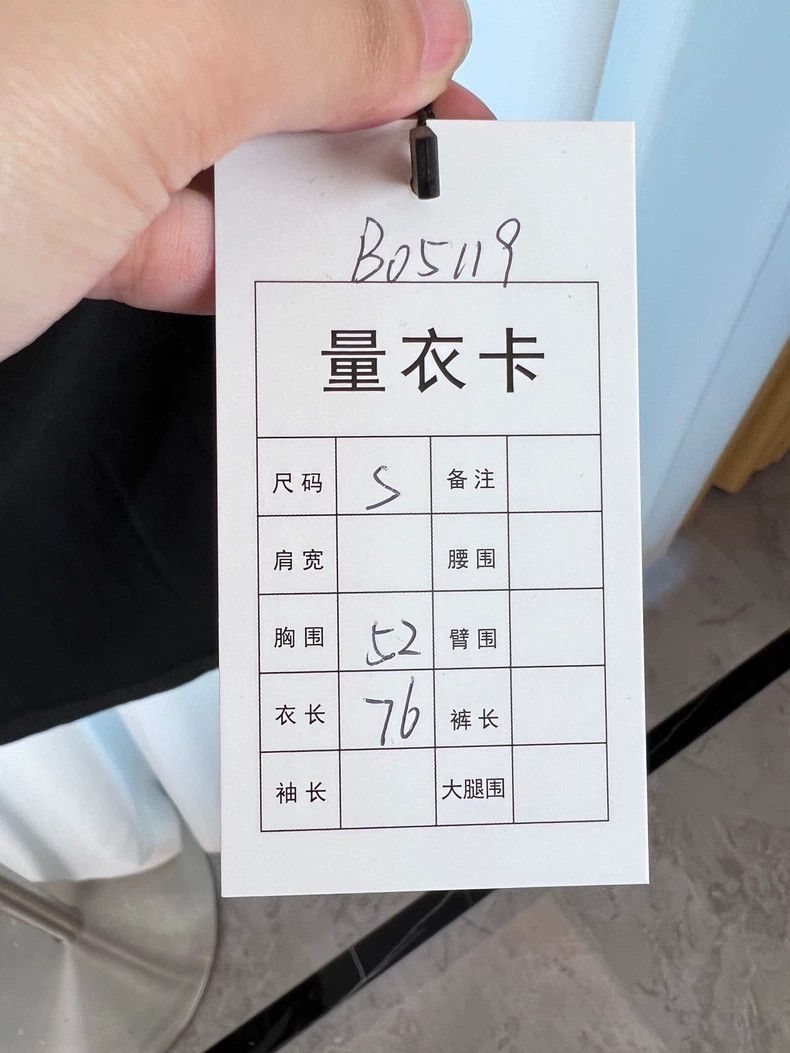 B05119
量衣卡
尺码 S 备注
肩宽 腰围
胸围 52 臂围
衣长 76 裤长
袖长 大腿围